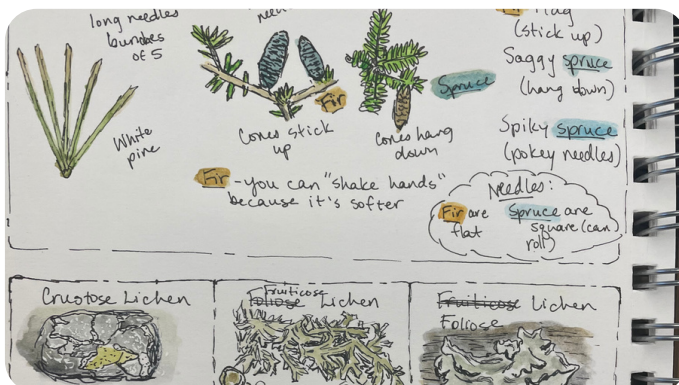 long needles
bundles
of 5
White
pine
Fir
Cones stick
up
Spruce
Cones hang
down
Fir
(stick up)
Saggy spruce
(hang down)
Spiky spruce
(pokey needles)
Fir - you can "shake hands"
because it's softer
Needles:
Fir are
flat
Spruce are
square (can
roll)
Crustose Lichen
Fruiticose
Foliose Lichen
Fruiticose Lichen
Foliose